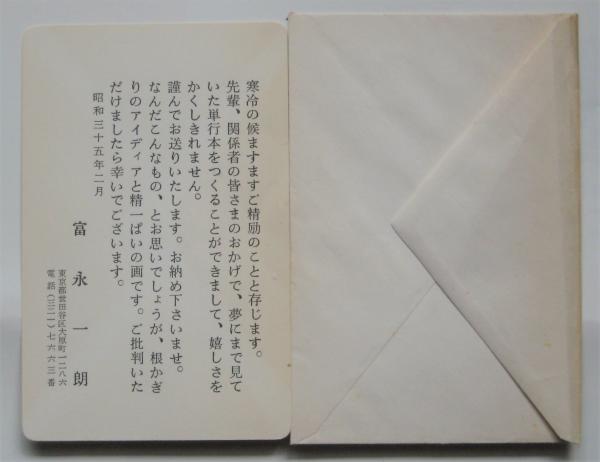 寒冷の候ますますご精励のことと存じます。
先輩、関係者の皆さまのおかげで、夢にまで見て
いた単行本をつくることができまして、嬉しさを
かくしきれません。
謹んでお送りいたします。お納め下さいませ。
なんだこんなもの、とお思いでしょうが、根かぎ
りのアイディアと精一ぱいの画です。ご批判いた
だけましたら幸いでございます。
昭和三十五年二月
富永一朗
東京都世田谷区大原町一二八六
電話(三二一)七六六三番